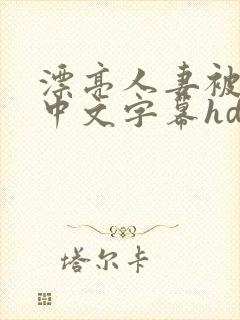 漂亮人妻被
中文字幕hd
塔尔卡